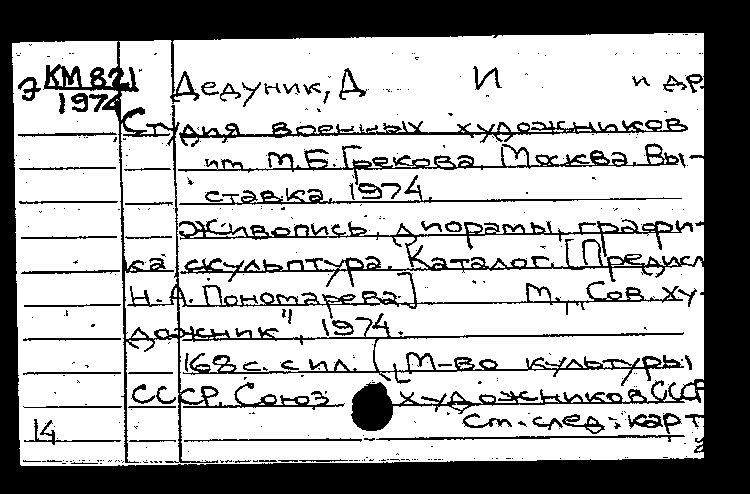 Э КМ 821
1974
Дедуник, Д И и др
Студия военных художников
им. М.Б. Грекова. Москва. Вы-
ставка. 1974.
Живопись, диорамы, графи-
ка скульптура. Каталог. [Предисл
Н.А. Пономарева] М., „Сов. ху-
дожник", 1974.
168 с. с ил. (М-во культуры
СССР. Союз художников СССР
14 ст. след. карт